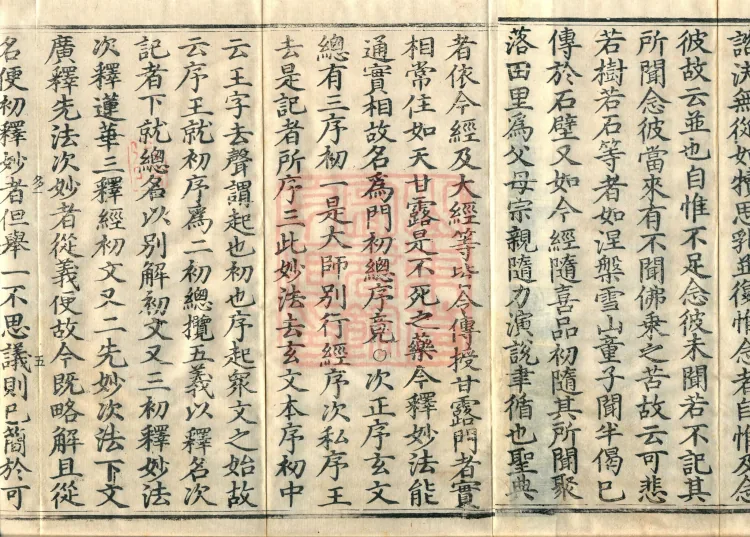 說法無從如犢思乳並復惟念者自惟及念
彼故云並也自惟不足念彼未聞若不記其
所聞念彼當來有不聞佛乘之苦故云可悲
若樹若石等者如涅槃雪山童子聞半偈已
傳於石壁又如今經隨喜品初隨其所聞聚
落田里爲父母宗親隨力演說聿循也聖典
者依今經及大經等皆今傳授甘露門者實
相常住如天甘露是不死之藥今釋妙法能
通實相故名爲門初總序竟○次正序玄文
總有三序初一是大師別行經序次私序王
去是記者所序三此妙法去玄文本序初中
云王字去聲謂起也初也序起衆文之始故
云序王就初序爲二初總攬五義以釋名次
記者下就總名以別解初文又三初釋妙法
次釋蓮華三釋經初文又二先妙次法下文
廣釋先法次妙者從義便故今既略解且從
五
名便初釋妙者但舉一不思議則已簡於可